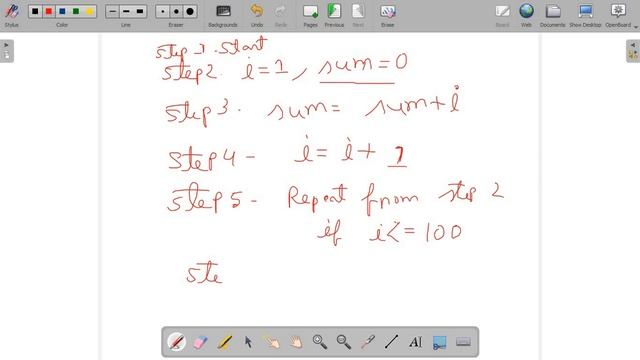 Stylus
Color
Line
Eraser
Backgrounds
Undo
Redo
Pages
Previous
Next
Erase
Board
Web
Documents
Show Desktop
OpenBoard
Step 1. Start
Step2. i=1, sum=0
Step3. sum= sum+i
Step4- i= i+ 1
Step5- Repeat from step 2
if i<=100
ste